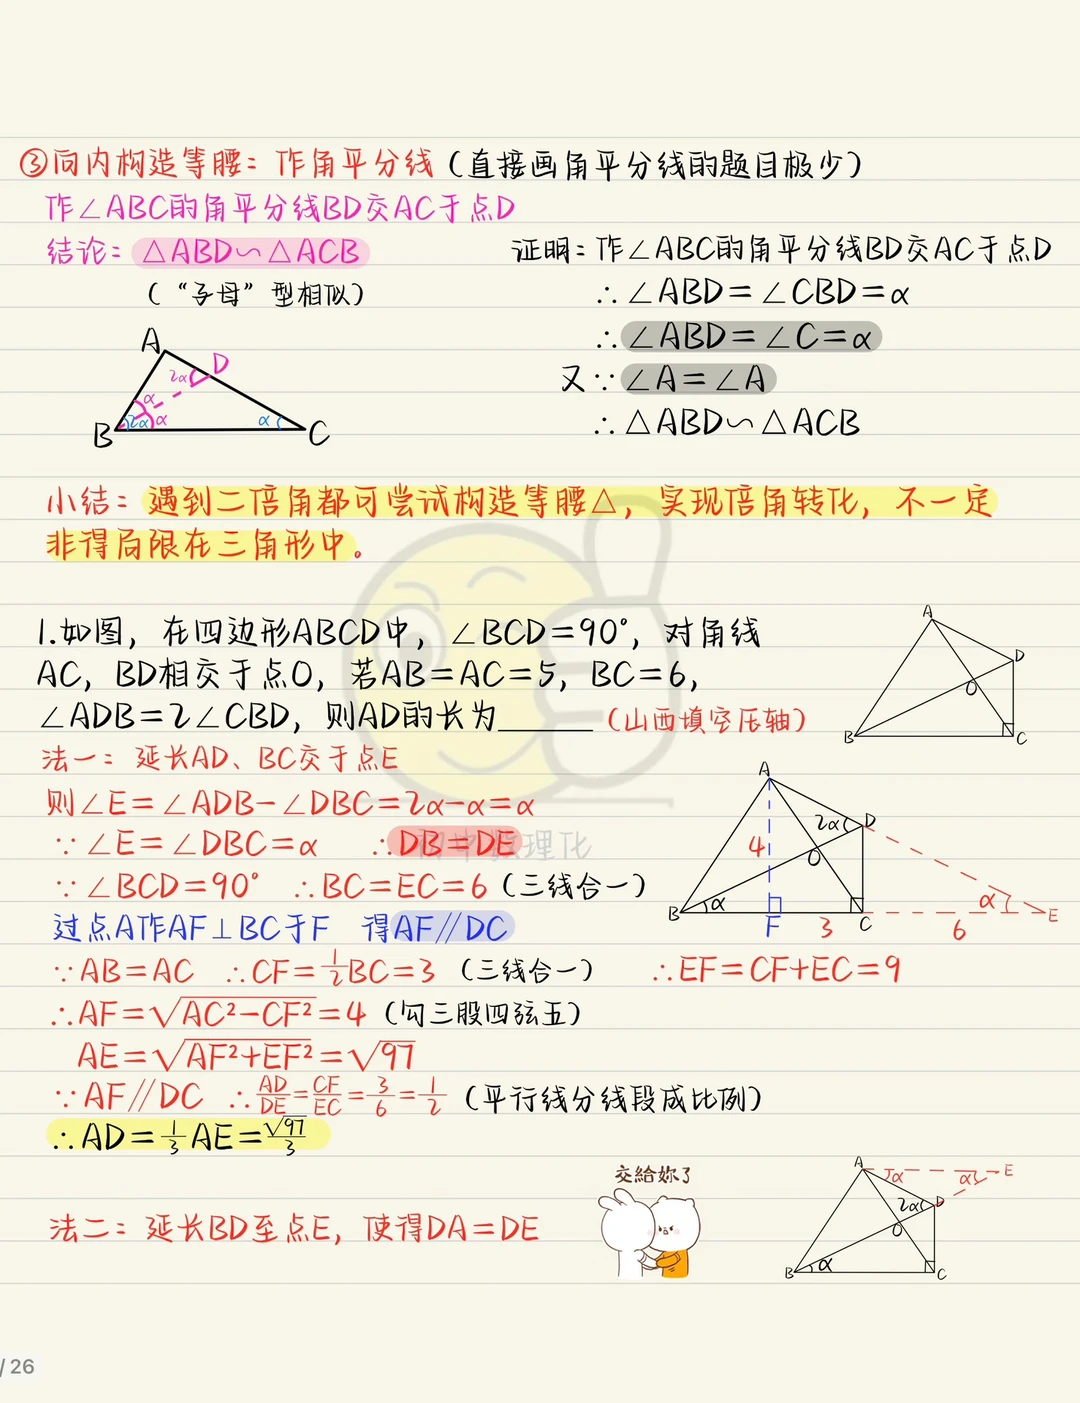 ③向内构造等腰：作角平分线（直接画角平分线的题目极少）
作∠ABC的角平分线BD交AC于点D
结论：△ABD∽△ACB
（“子母”型相似）
证明：作∠ABC的角平分线BD交AC于点D
∴∠ABD=∠CBD=α
∴∠ABD=∠C=α
又∵∠A=∠A
∴△ABD∽△ACB
A
D
2α
α
2α α
α
B
C
小结：遇到二倍角都可尝试构造等腰△，实现倍角转化，不一定
非得局限在三角形中。
1.如图，在四边形ABCD中，∠BCD=90°，对角线
AC，BD相交于点O，若AB=AC=5，BC=6，
∠ADB=2∠CBD，则AD的长为______（山西填空压轴）
A
D
O
B
C
法一：延长AD、BC交于点E
则∠E=∠ADB-∠DBC=2α-α=α
∵∠E=∠DBC=α ∴DB=DE
∵∠BCD=90° ∴BC=EC=6（三线合一）
过点A作AF⊥BC于F 得AF∥DC
∵AB=AC ∴CF=1/2BC=3（三线合一） ∴EF=CF+EC=9
∴AF=√AC²-CF²=4（勾三股四弦五）
AE=√AF²+EF²=√97
∵AF∥DC ∴AD/DE=CF/EC=3/6=1/2（平行线分线段成比例）
∴AD=1/3AE=√97/3
A
2α D
4
O
B α
α E
F 3 C 6
法二：延长BD至点E，使得DA=DE
交給妳了
A α α E
2α D
O
B α
C
/ 26